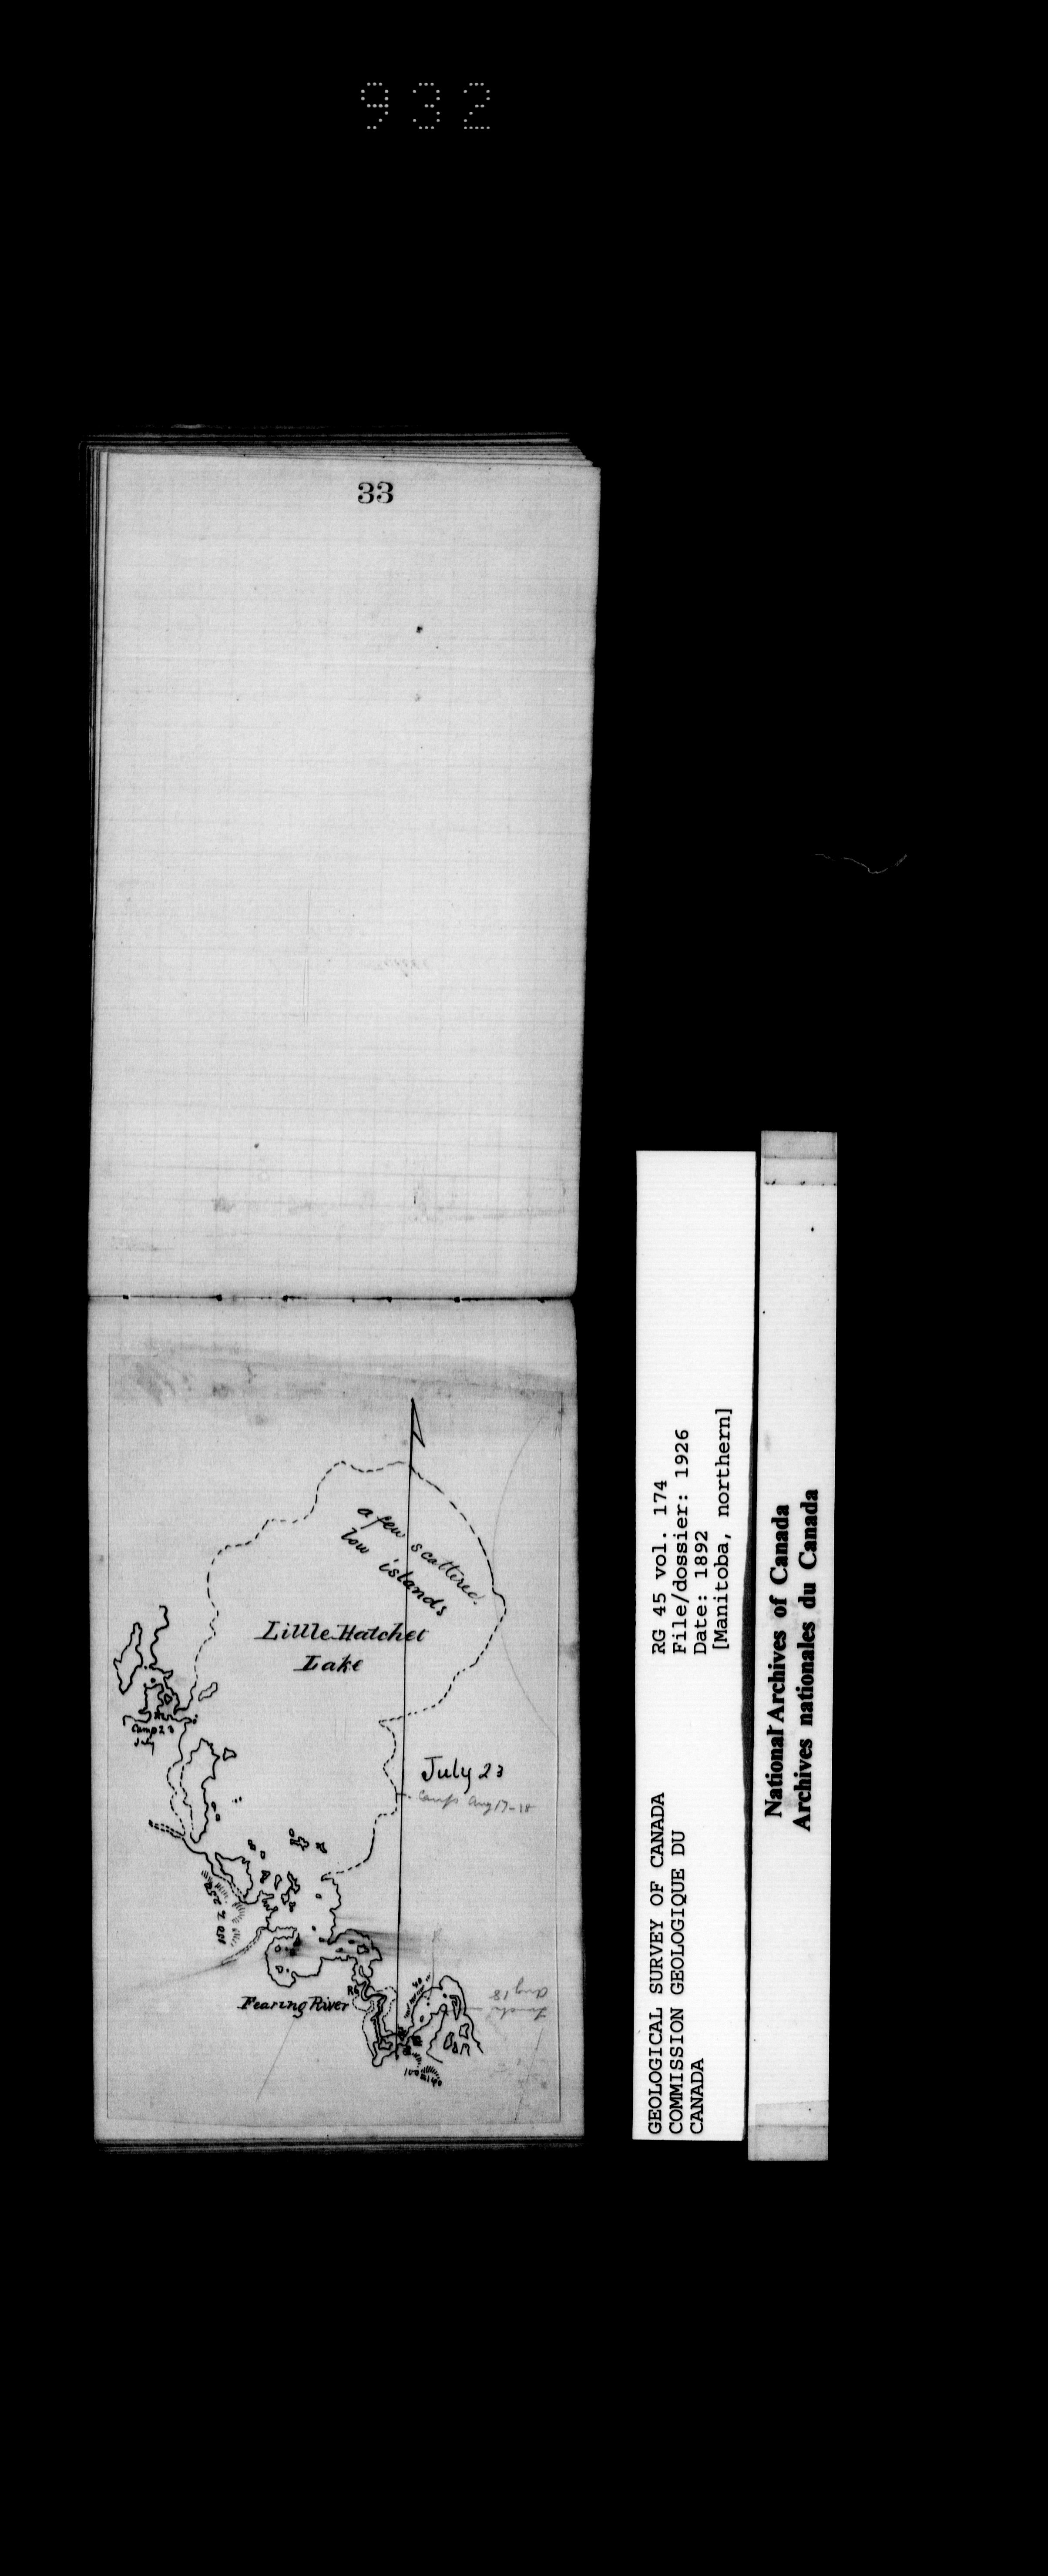 932
33
a few scattered
low islands
Little Hatchet
Lake
Camp 23
July
July 23
Camp Aug 17-18
Fearing River
Aug 18
GEOLOGICAL SURVEY OF CANADA
COMMISSION GEOLOGIQUE DU
CANADA
RG 45 vol. 174
File/dossier: 1926
Date: 1892
[Manitoba, northern]
National Archives of Canada
Archives nationales du Canada